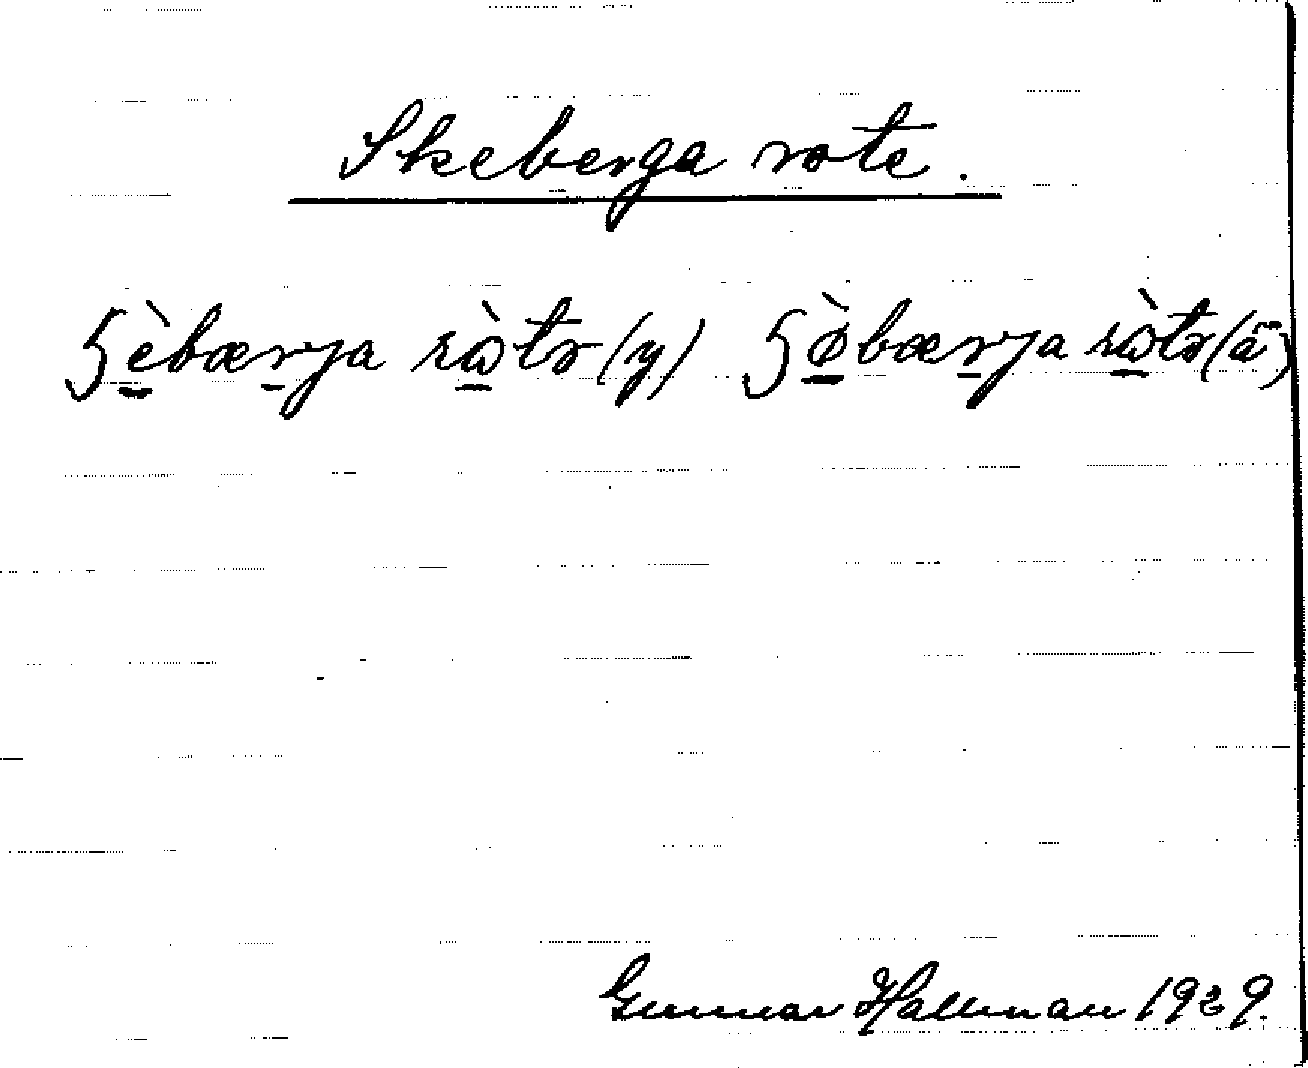 Skeberga rote.
ʂèbærja ròtɘ (y) ʂø̀bærja ròtɘ (ä)
Gunnar Hallman 1929.